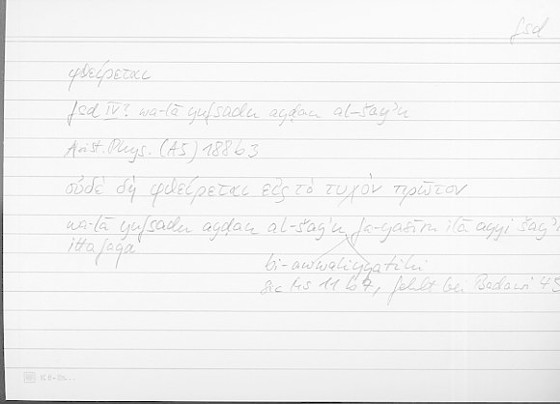 fsd
φθείρεται
fsd IV? wa-lā yufsadu ayḍan al-šayʾu
Arist. Phys. (A5) 188b3
οὐδὲ δὴ φθείρεται εἰς τὸ τυχὸν πρῶτον
wa-lā yufsadu ayḍan al-šayʾu fa-yaṣīru ilā ayyi šayʾi
ittafaqa
bi-awwaliyyatihi
sic MS 11b7, fehlt bei Badawi 45